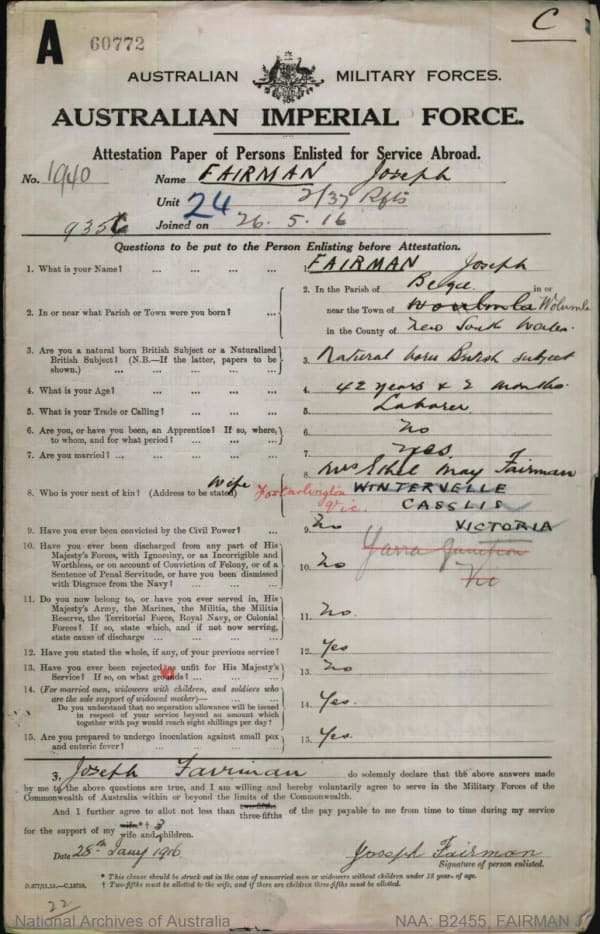 A
60772
C
AUSTRALIAN MILITARY FORCES.
AUSTRALIAN IMPERIAL FORCE.
Attestation Paper of Persons Enlisted for Service Abroad.
No. 1940 Name FAIRMAN Joseph
Unit 24 2/37 Rfts
Joined on 26.5.16
Questions to be put to the Person Enlisting before Attestation.
1. What is your Name? ... ... ... 1. FAIRMAN Joseph
2. In or near what Parish or Town were you born? ...
2. In the Parish of Bega in or
near the Town of Wolumla
in the County of New South Wales
3. Are you a natural born British Subject or a Naturalized
British Subject? (N.B.—If the latter, papers to be
shown.) ... ... ... ...
3. Natural born British subject
4. What is your Age? ... ... ... 4. 42 years & 2 months.
5. What is your Trade or Calling? ... ... ... 5. Laborer
6. Are you, or have you been, an Apprentice? If so, where,
to whom, and for what period? ... ... ...
6. No
7. Are you married? ... ... ... ... 7. yes.
8. Who is your next of kin? (Address to be stated) wife
8. Mrs Ethel May Fairman
WINTERVELLE
CASSLIS
VICTORIA
Vic.
Yarra Junction
Vic
9. Have you ever been convicted by the Civil Power? ... 9. No
10. Have you ever been discharged from any part of His
Majesty's Forces, with Ignominy, or as Incorrigible and
Worthless, or on account of Conviction of Felony, or of a
Sentence of Penal Servitude, or have you been dismissed
with Disgrace from the Navy? ... ...
10. No
11. Do you now belong to, or have you ever served in, His
Majesty's Army, the Marines, the Militia, the Militia
Reserve, the Territorial Force, Royal Navy, or Colonial
Forces? If so, state which, and if not now serving,
state cause of discharge ... ... ...
11. No.
12. Have you stated the whole, if any, of your previous service? 12. Yes
13. Have you ever been rejected as unfit for His Majesty's
Service? If so, on what grounds? ... ... ...
13. No
14. (For married men, widowers with children, and soldiers who
are the sole support of widowed mother)— ... ...
Do you understand that no separation allowance will be issued
in respect of your service beyond an amount which
together with pay would reach eight shillings per day?
14. Yes.
15. Are you prepared to undergo inoculation against small pox
and enteric fever? ... ... ... ...
15. Yes.
I, Joseph Fairman do solemnly declare that the above answers made
by me to the above questions are true, and I am willing and hereby voluntarily agree to serve in the Military Forces of the
Commonwealth of Australia within or beyond the limits of the Commonwealth.
And I further agree to allot not less than two-fifths three-fifths of the pay payable to me from time to time during my service
for the support of my wife*† 3
wife and children.
Date 28th Jany 1916 Joseph Fairman
Signature of person enlisted.
* This clause should be struck out in the case of unmarried men or widowers without children under 18 years of age.
† Two-fifths must be allotted to the wife, and if there are children three-fifths must be allotted.
22
National Archives of Australia NAA: B2455, FAIRMAN J